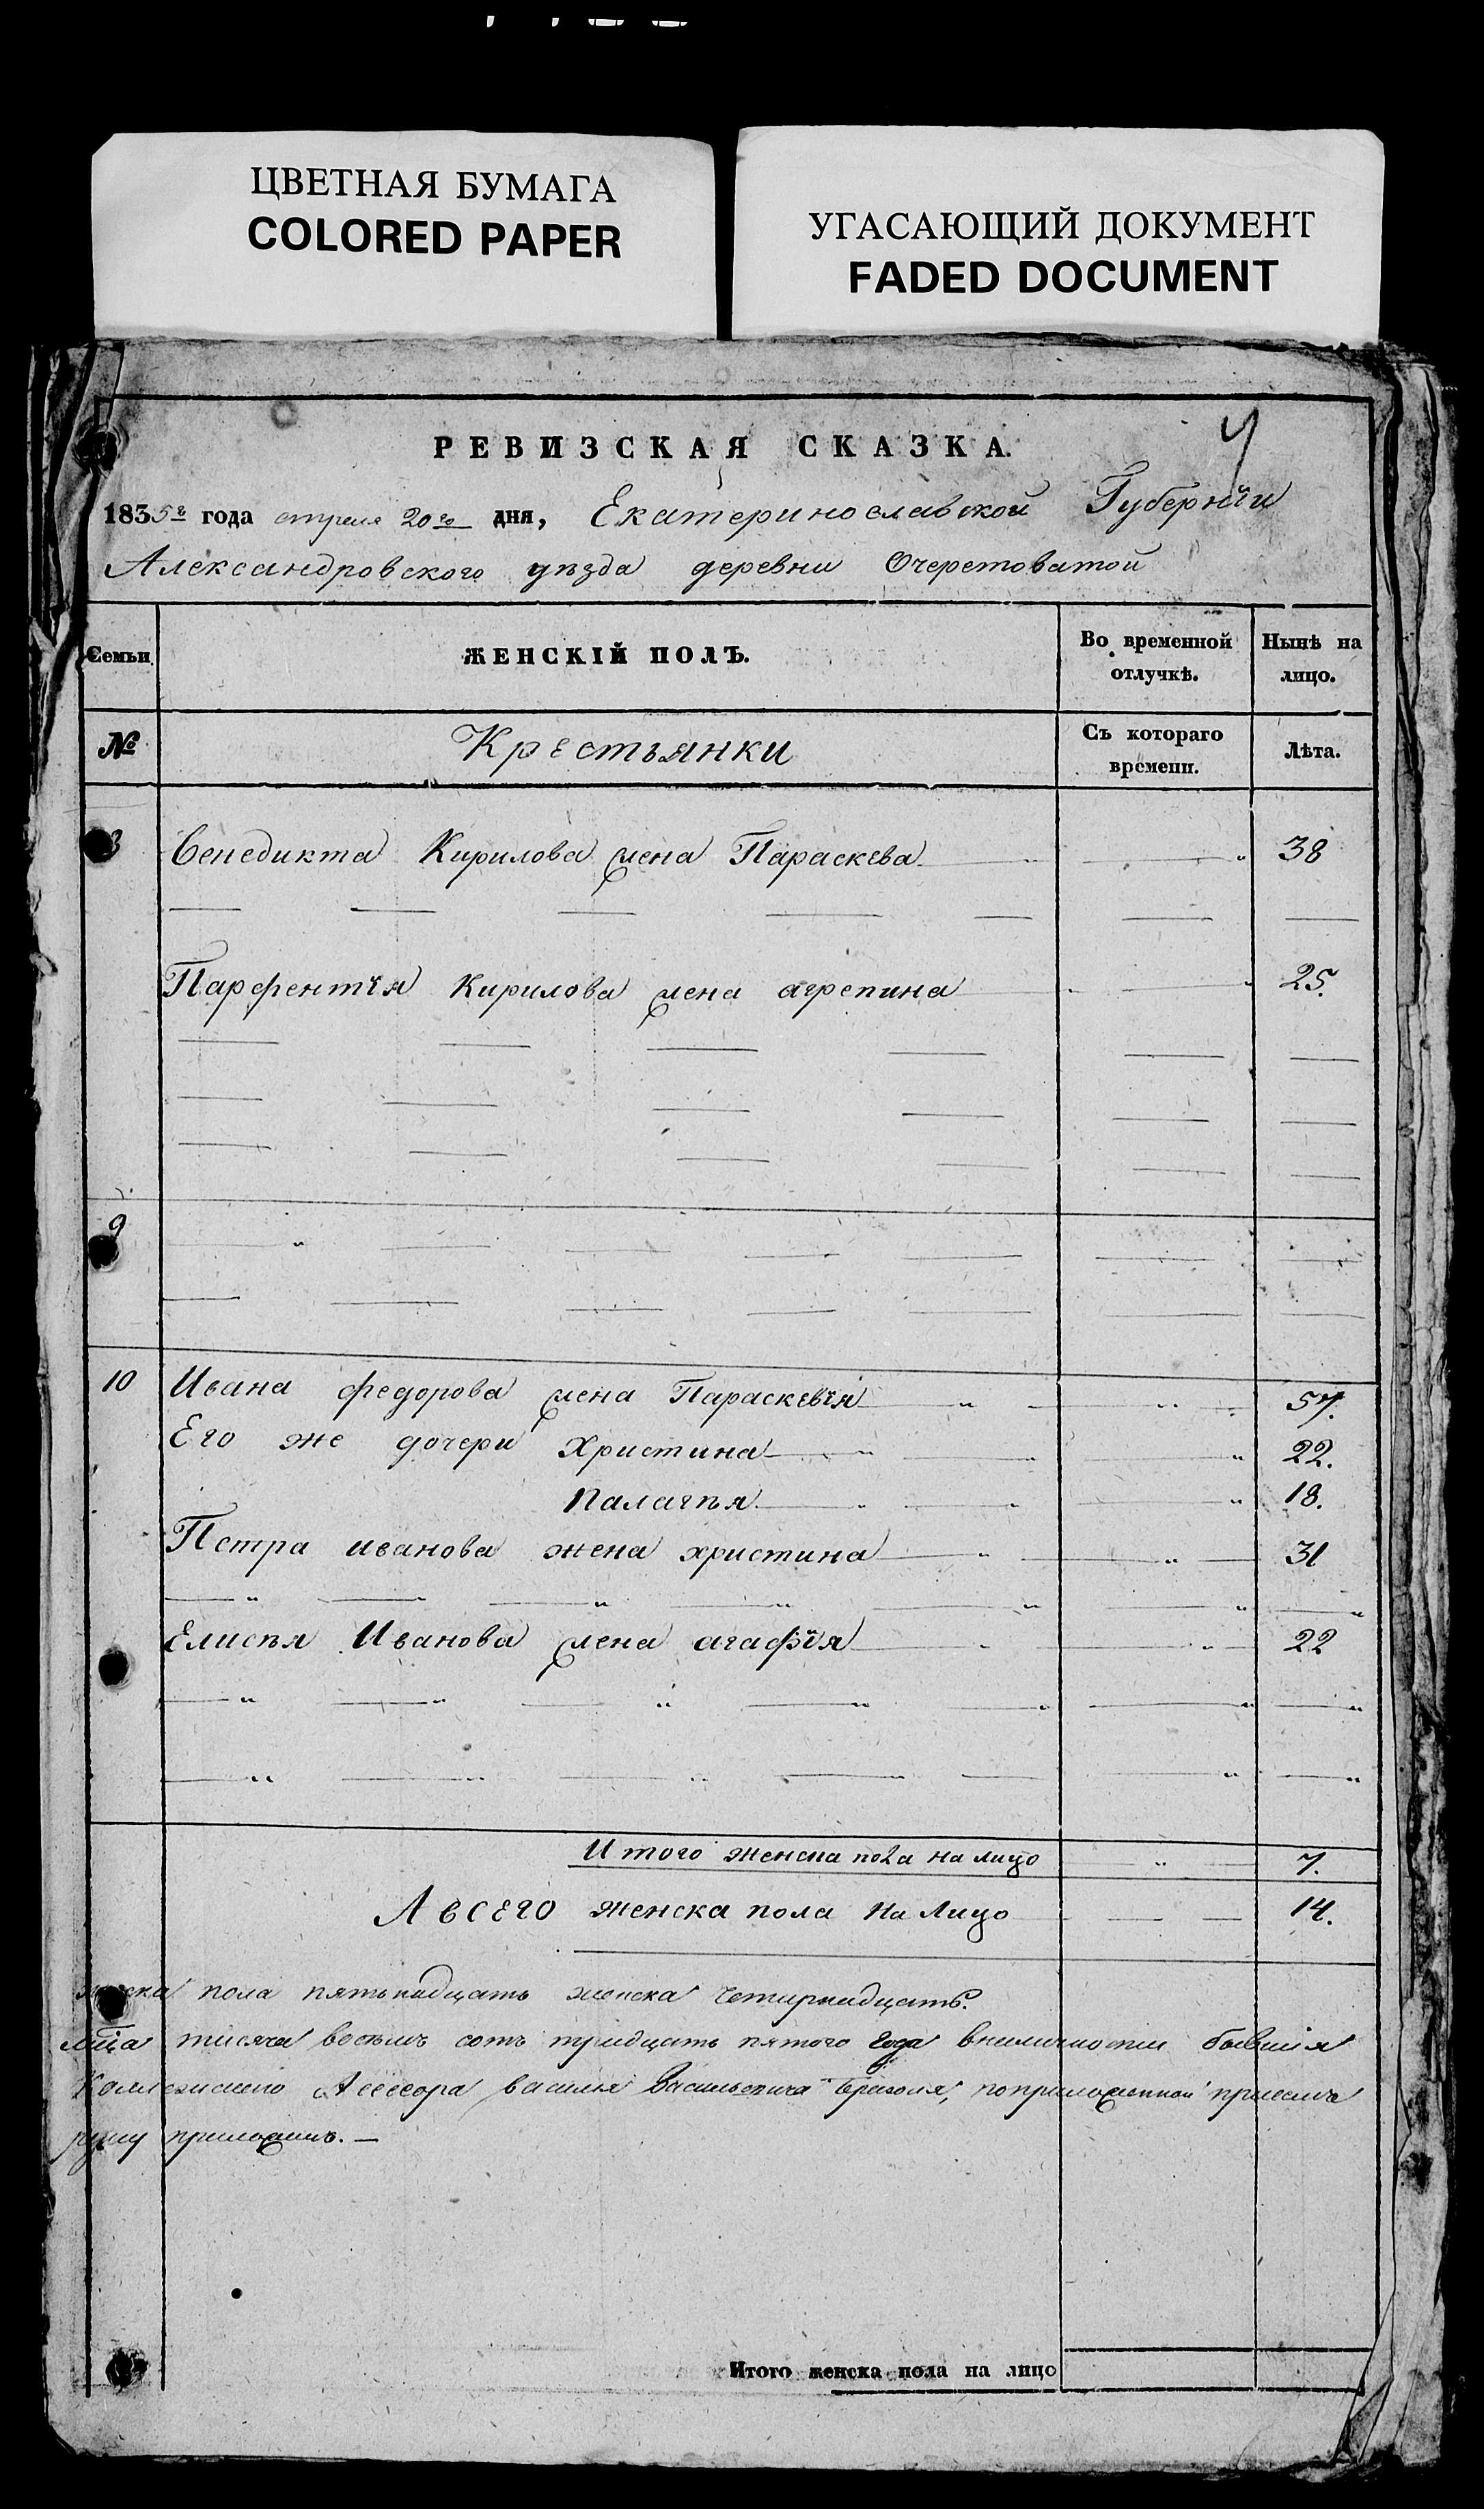 ЦВЕТНАЯ БУМАГА
COLORED PAPER
УГАСАЮЩИЙ ДОКУМЕНТ
FADED DOCUMENT
РЕВИЗСКАЯ СКАЗКА.
1835г года апреля 20го дня, Екатеринославской Губернїи
Александровского уѣзда деревни Очеретоватой
Семьи. ЖЕНСКІЙ ПОЛЪ. Во временной отлучкѣ. Нынѣ на лицо.
№ Крестьянки Съ котораго времени. Лѣта.
8 Венедикта Кирилова жена Параскева 38
Парфентїя Кирилова жена агрепина 25.
9
10 Ивана федорова жена Параскевїя 57.
Его же дочери Христина 22.
Палагѣя 18.
Петра иванова жена христина 31
Елисѣя Иванова жена агафїя 22
Итого женска пола на лицо 7.
А всего женска пола на Лицо 14.
пола пятьнадцать женска четырнадцать.
тисяча восѣмъ сотъ тридцать пятого года вналичности бывшія
Асессора василья васильевича
руку приложилъ. —
Итого женска пола на лицо